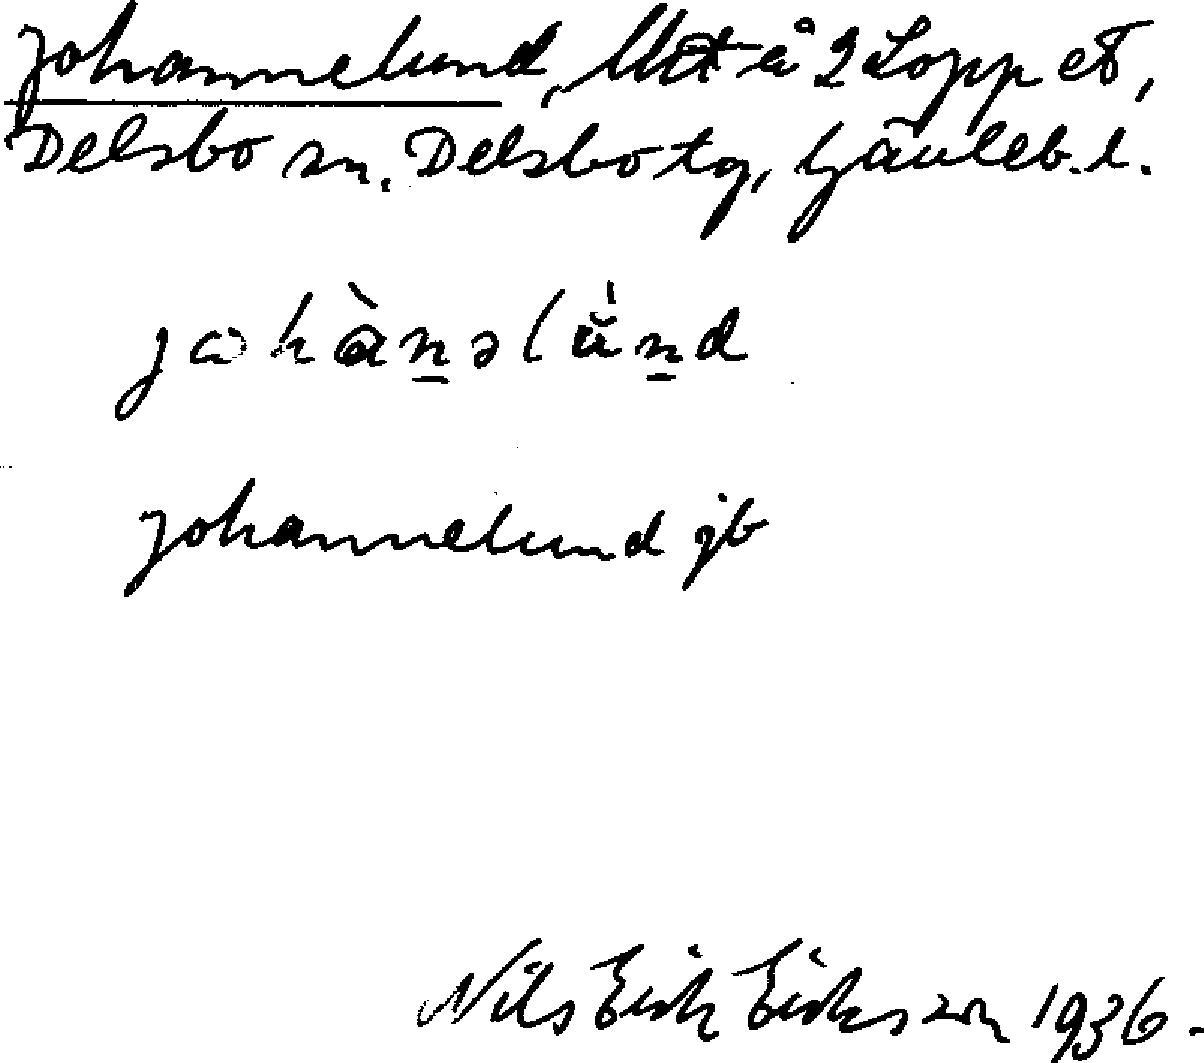 Johannelund, å 2 Lopp
Delsbo sn. Delsbo tg, Gävleb. l.
johànəlund
Johannelund jb
Nils Erik Eriksson 1936.